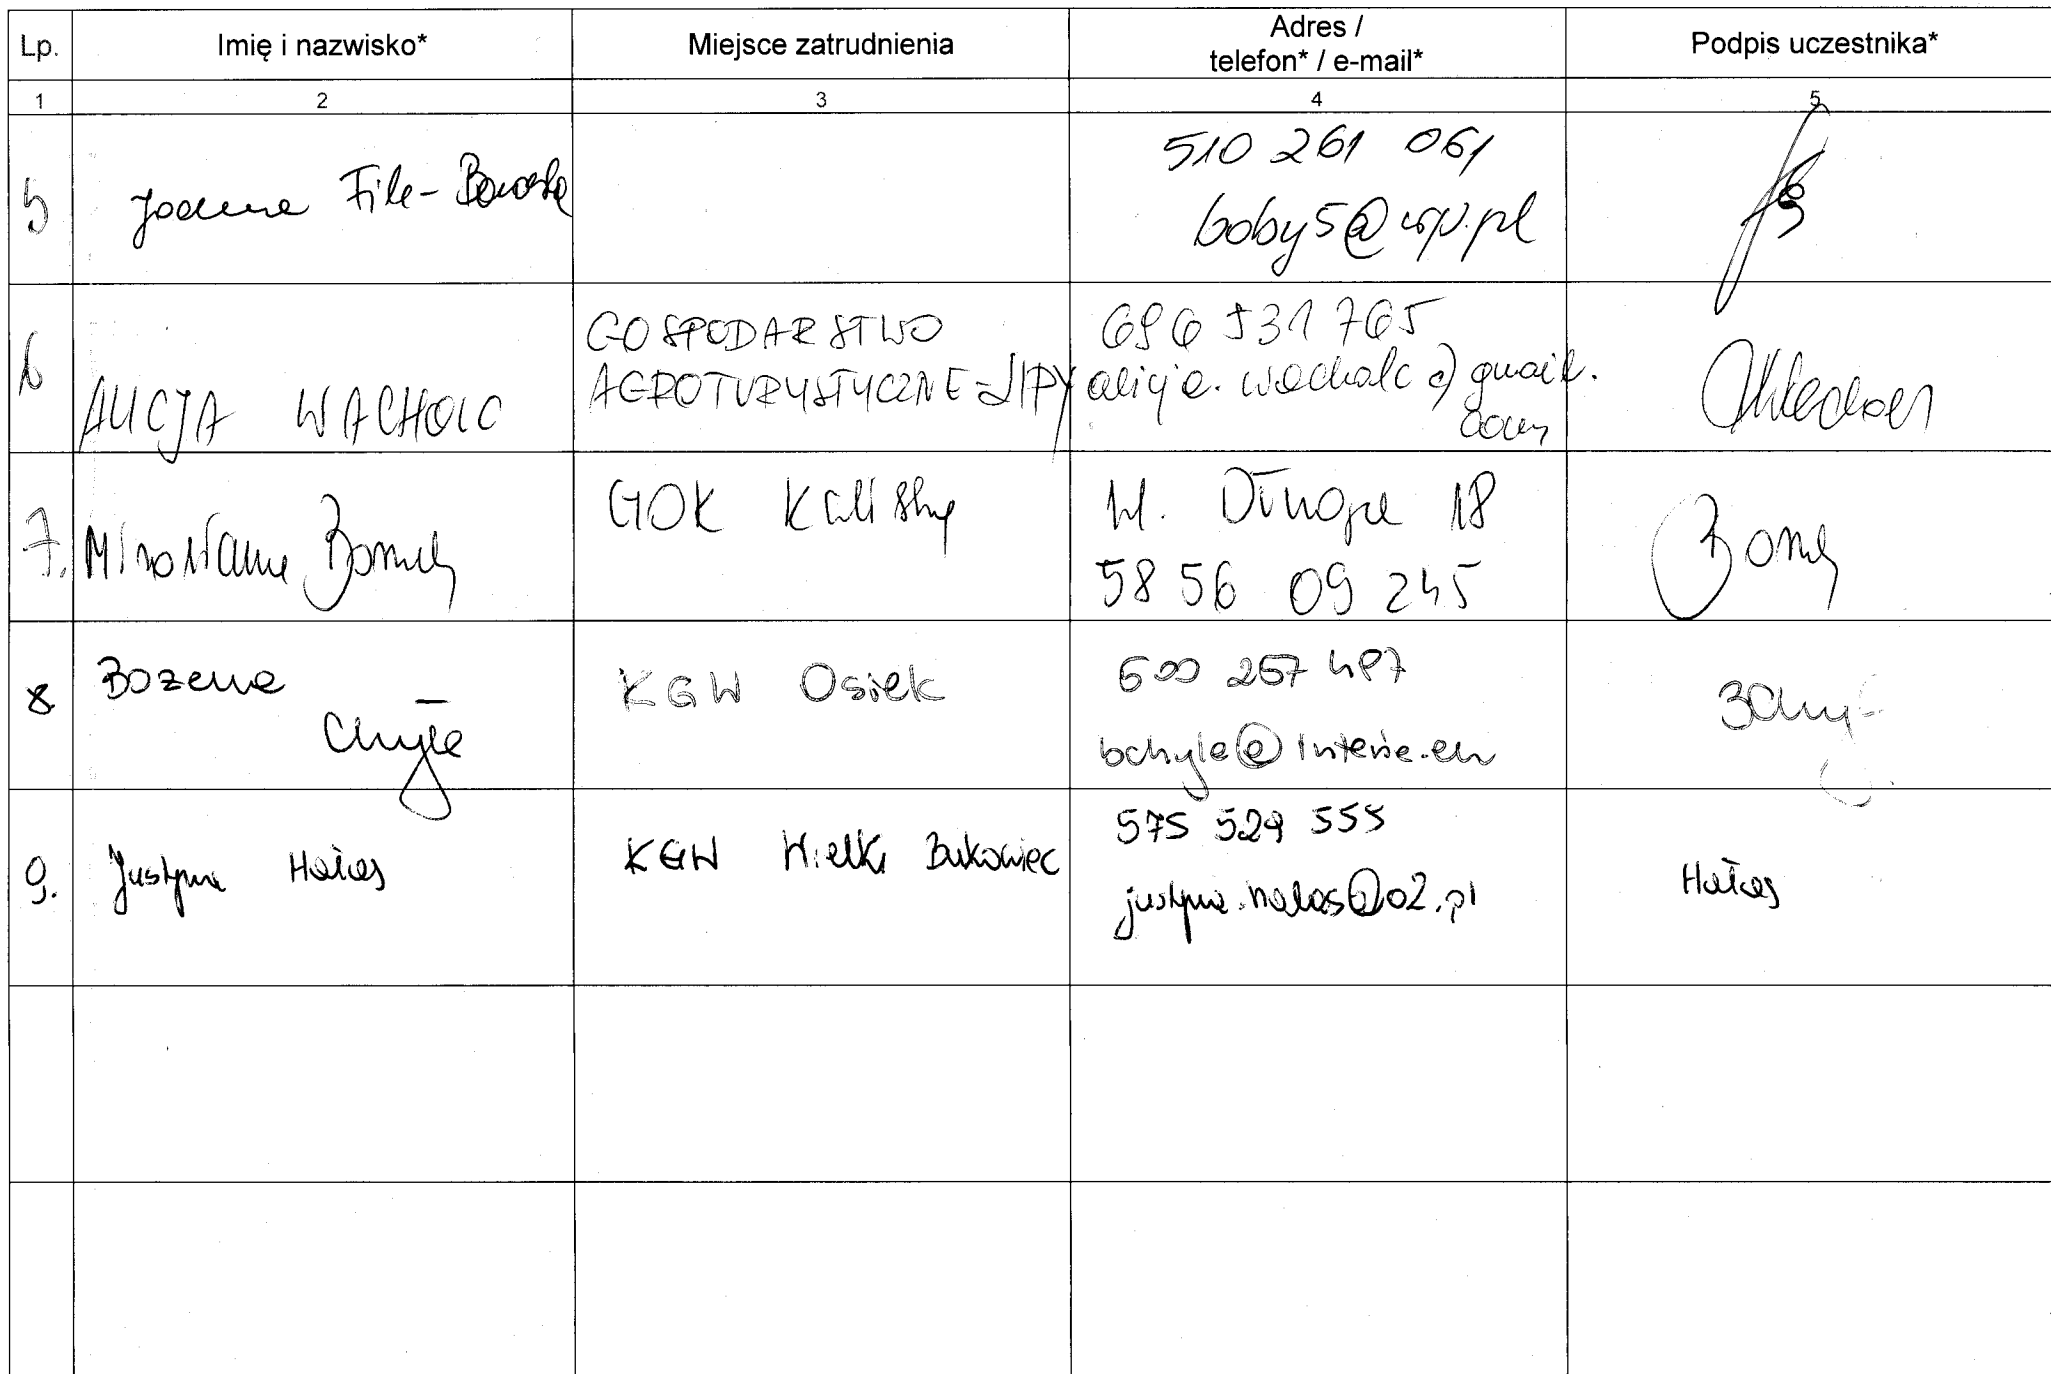 Lp. Imię i nazwisko* Miejsce zatrudnienia Adres / telefon* / e-mail* Podpis uczestnika*
1 2 3 4 5
5 Joanna File-
510 261 061
boby5@wp.pl
6 ALICJA WACHOLC
GOSPODARSTWO
AGROTURYSTYCZNE-LIPY
696 531 765
alicja.wacholc@gmail.
com
7. Mirosława
GOK Kaliska
ul. Długa 18
58 56 09 245
8 Bożena
Chyła
KGW Osiek
600 257 487
bchyla@interia.eu
9. Justyna Hałas
KGW Wielki Bukowiec
575 529 555
justyna.halas@o2.pl
Hałas